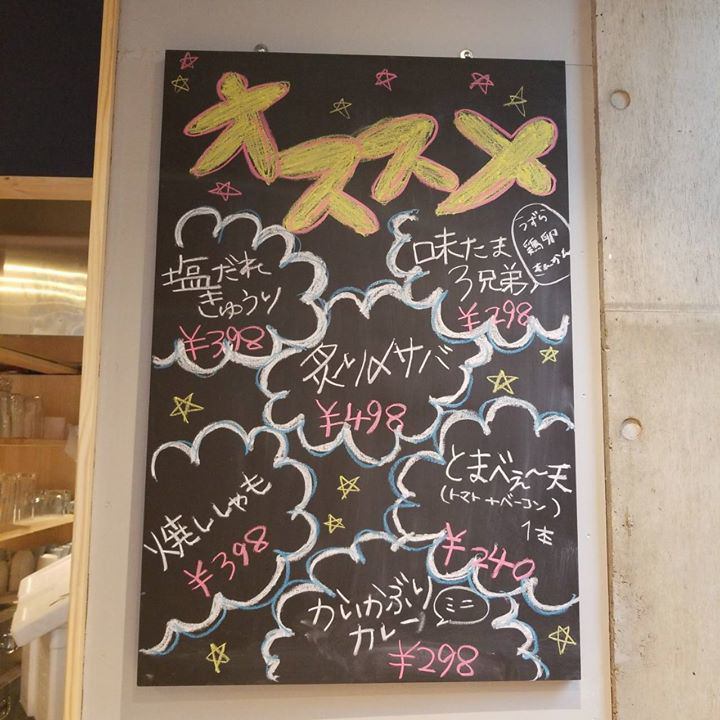 オススメ
塩だれ
きゅうり
¥398
味たま
3兄弟
うずら
鶏卵
きんかん
¥298
炙り〆サバ
¥498
焼ししゃも
¥398
とまべぇ〜天
(トマト+ベーコン)
1本
¥240
かいかぶり
カレー
ミニ
¥298